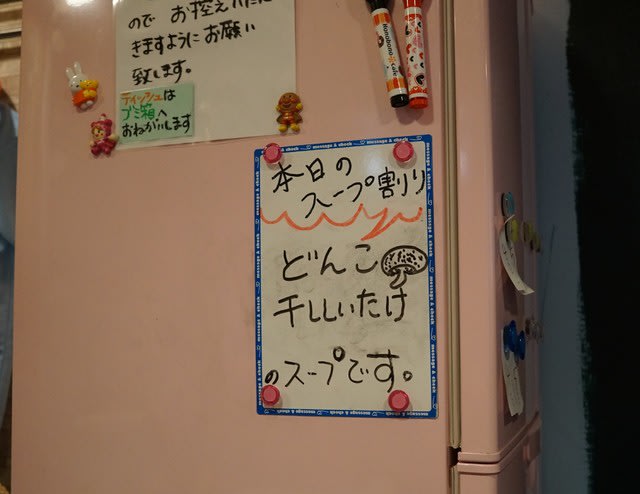 ので お控えいただ
きますようにお願い
致します。
ティッシュは
ゴミ箱へ
おねがいします
本日の
スープ割り
どんこ
干ししいたけ
のスープです。
message & check